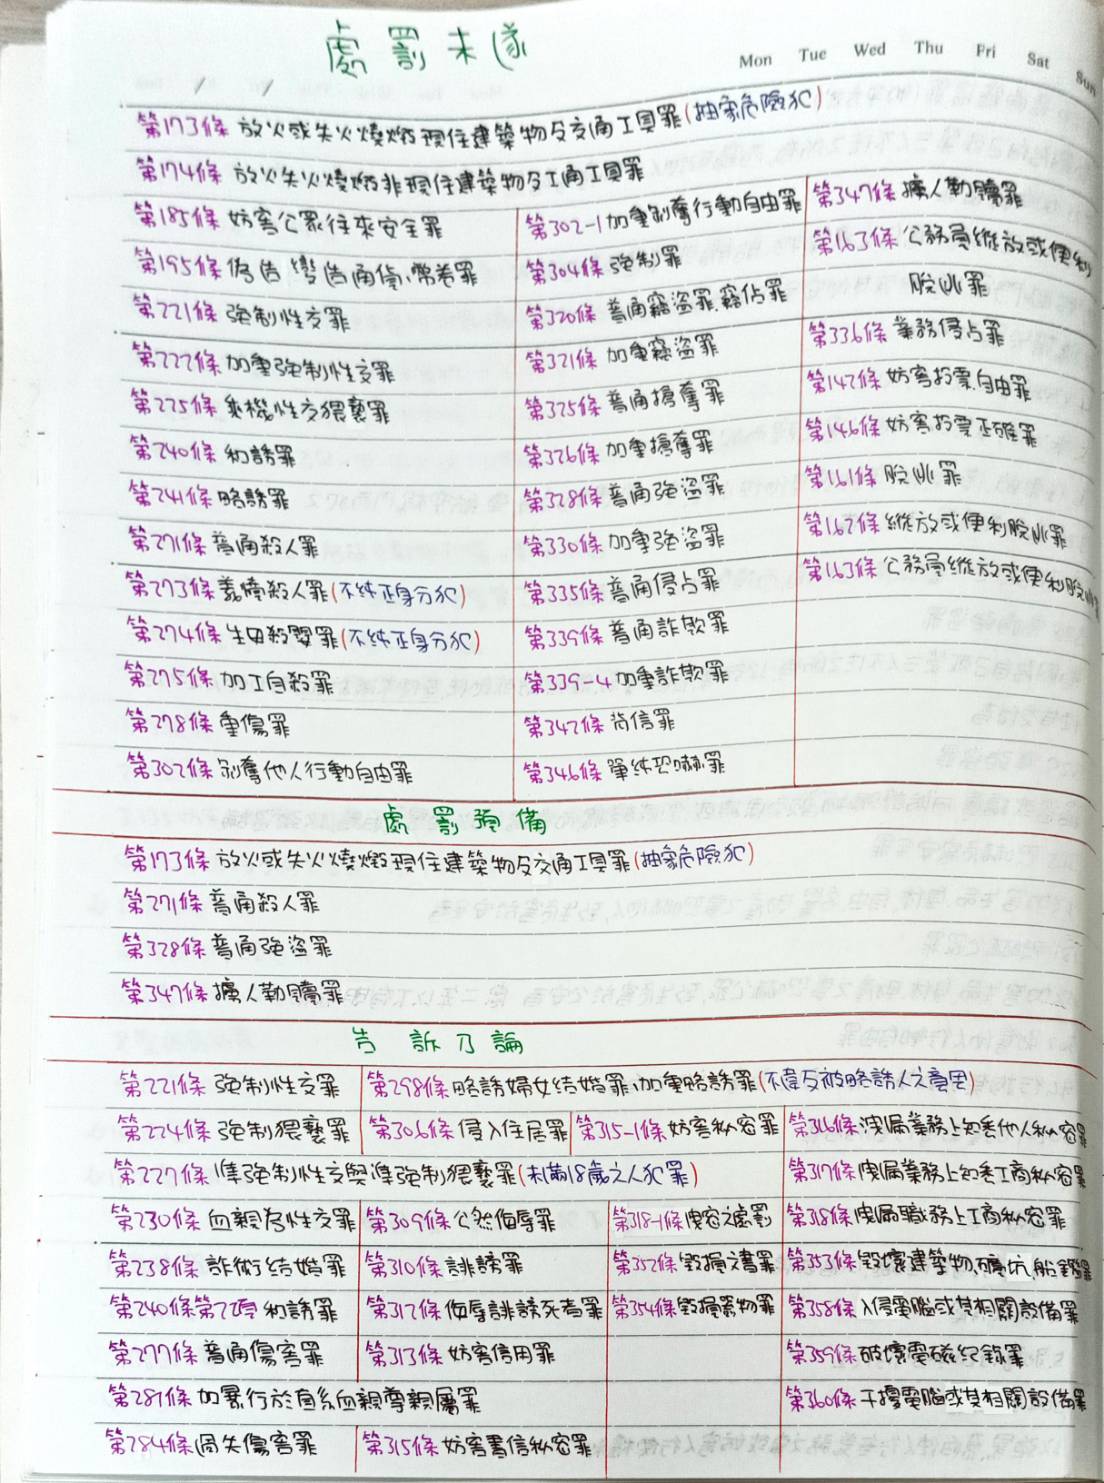 處罰未遂
Mon Tue Wed Thu Fri Sat Sun
第173條 放火或失火燒燬現住建築物及交通工具罪(抽象危險犯)
第174條 放火失火燒燬非現住建築物及工通工具罪
第185條 妨害公眾往來安全罪
第195條 偽造 變造通貨、幣券罪
第221條 強制性交罪
第222條 加重強制性交罪
第225條 乘機性交猥褻罪
第240條 和誘罪
第241條 略誘罪
第271條 普通殺人罪
第273條 義憤殺人罪(不純正身分犯)
第274條 生母殺嬰罪(不純正身分犯)
第275條 加工自殺罪
第278條 重傷罪
第302條 剝奪他人行動自由罪
第302-1 加重剝奪行動自由罪
第304條 強制罪
第320條 普通竊盜罪、竊佔罪
第321條 加重竊盜罪
第325條 普通搶奪罪
第326條 加重搶奪罪
第328條 普通強盜罪
第330條 加重強盜罪
第335條 普通侵占罪
第339條 普通詐欺罪
第339-4 加重詐欺罪
第342條 背信罪
第346條 單純恐嚇罪
第347條 擄人勒贖罪
第163條 公務員縱放或便利
脫逃罪
第336條 業務侵占罪
第142條 妨害投票自由罪
第146條 妨害投票正確罪
第161條 脫逃罪
第162條 縱放或便利脫逃罪
第163條 公務員縱放或便利脫逃
處罰預備
第173條 放火或失火燒燬現住建築物及交通工具罪(抽象危險犯)
第271條 普通殺人罪
第328條 普通強盜罪
第347條 擄人勒贖罪
告訴乃論
第221條 強制性交罪 第298條 略誘婦女結婚罪、加重略誘罪(不違反被略誘人之意思)
第224條 強制猥褻罪 第306條 侵入住居罪 第315-1條 妨害秘密罪 第316條 洩漏業務上知悉他人秘密罪
第227條 準強制性交與準強制猥褻罪(未滿18歲之人犯罪) 第317條 洩漏業務上知悉工商秘密罪
第230條 血親為性交罪 第309條 公然侮辱罪 第318-1條 洩密之處罰 第318條 洩漏職務上工商秘密罪
第238條 詐術結婚罪 第310條 誹謗罪 第352條 毀損文書罪 第353條 毀壞建築物、礦坑、船艦罪
第240條第2項 和誘罪 第312條 侮辱誹謗死者罪 第354條 毀損器物罪 第358條 入侵電腦或其相關設備罪
第277條 普通傷害罪 第313條 妨害信用罪 第359條 破壞電磁紀錄罪
第281條 加暴行於直系血親尊親屬罪 第360條 干擾電腦或其相關設備罪
第284條 過失傷害罪 第315條 妨害書信秘密罪